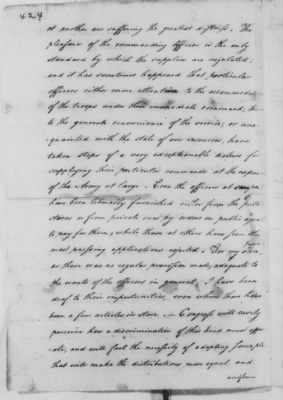 424.
at another are suffering the greatest distress. The
pleasure of the commanding Officer is the only
standard by which the supplies are regulated;
and it has sometimes happened that particular
officers either more attentive to the accommodation
of the troops under their immediate command, than
to the general convenience of the service; or unacquainted
with the state of our resources, have
taken steps of a very exceptionable nature for
supplying their particular commands at the expence
of the Army at large. Even the officers at
have been liberally furnished either from the public
stores or from private ones by orders on public agents
to pay for them; while those at others have found the
most pressing applications rejected. For my own part
as there was no regular provision made, adequate to
the wants of the officers in general, I have been
deaf to their importunities, even when there have
been a few articles in store. — Congress will easily
perceive how a discrimination of this kind must operate,
and will feel the necessity of adopting some plan
that will make the distributions more equal and
uniform